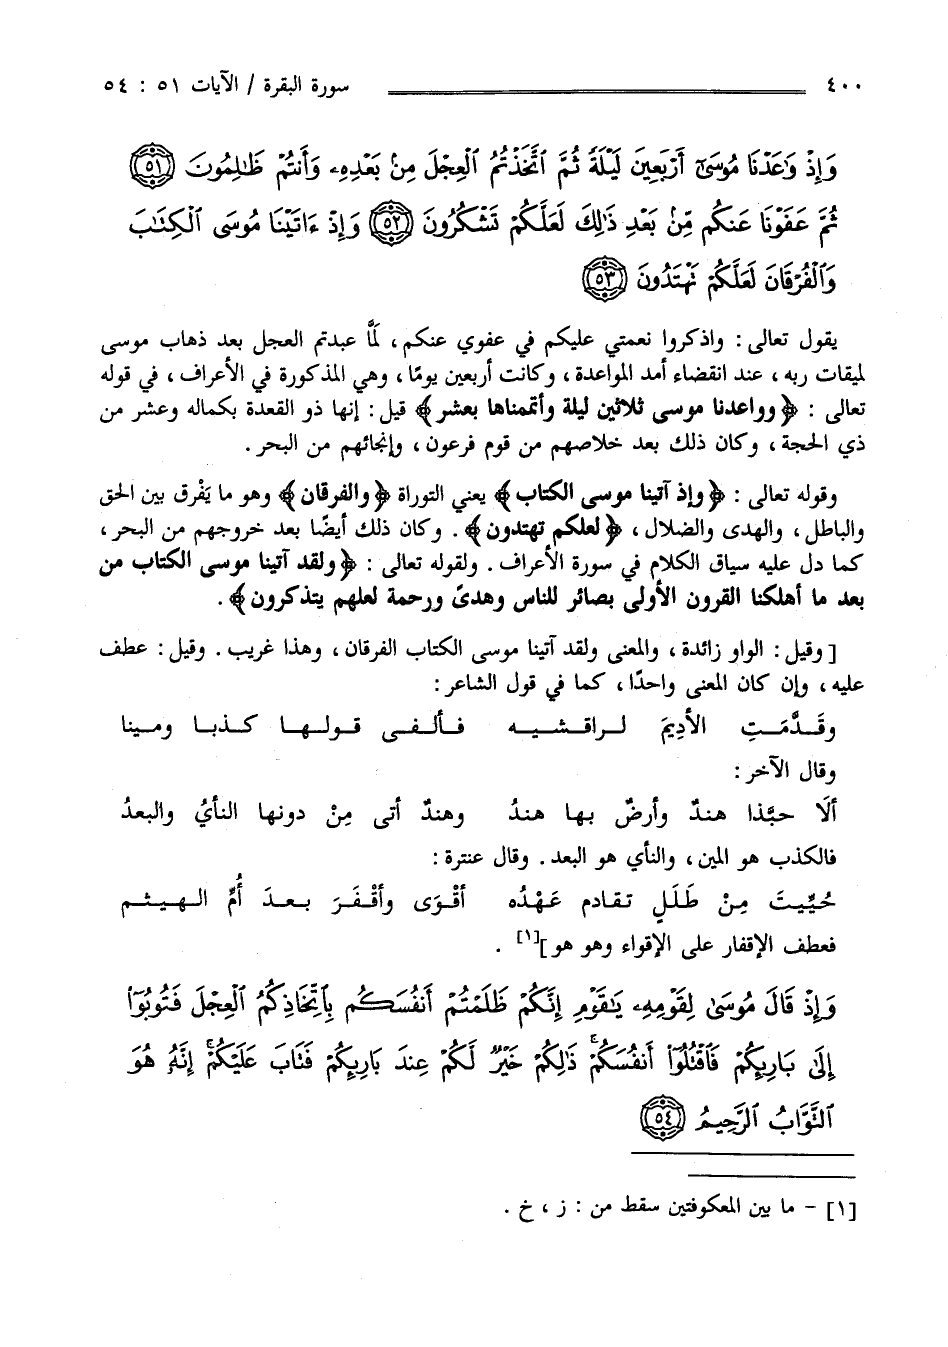 ٤٠٠ سورة البقرة / الآيات ٥١ : ٥٤
وَإِذْ وَٰعَدْنَا مُوسَىٰٓ أَرْبَعِينَ لَيْلَةً ثُمَّ ٱتَّخَذْتُمُ ٱلْعِجْلَ مِنۢ بَعْدِهِۦ وَأَنتُمْ ظَٰلِمُونَ ٥١
ثُمَّ عَفَوْنَا عَنكُم مِّنۢ بَعْدِ ذَٰلِكَ لَعَلَّكُمْ تَشْكُرُونَ ٥٢ وَإِذْ ءَاتَيْنَا مُوسَى ٱلْكِتَٰبَ
وَٱلْفُرْقَانَ لَعَلَّكُمْ تَهْتَدُونَ ٥٣
يقول تعالى : واذكروا نعمتي عليكم في عفوي عنكم ، لَمَّا عبدتم العجل بعد ذهاب موسى
لميقات ربه ، عند انقضاء أمد المواعدة ، وكانت أربعين يومًا ، وهي المذكورة في الأعراف ، في قوله
تعالى : ﴿ وواعدنا موسى ثلاثين ليلة وأتممناها بعشر ﴾ قيل : إنها ذو القعدة بكماله وعشر من
ذي الحجة ، وكان ذلك بعد خلاصهم من قوم فرعون ، وإنجائهم من البحر .
وقوله تعالى : ﴿ وإذ آتينا موسى الكتاب ﴾ يعني التوراة ﴿ والفرقان ﴾ وهو ما يَفْرق بين الحق
والباطل ، والهدى والضلال ، ﴿ لعلكم تهتدون ﴾ . وكان ذلك أيضًا بعد خروجهم من البحر ،
كما دل عليه سياق الكلام في سورة الأعراف . ولقوله تعالى : ﴿ ولقد آتينا موسى الكتاب من
بعد ما أهلكنا القرون الأولى بصائر للناس وهدىً ورحمة لعلهم يتذكرون ﴾ .
[ وقيل : الواو زائدة ، والمعنى ولقد آتينا موسى الكتاب الفرقان ، وهذا غريب . وقيل : عطف
عليه ، وإن كان المعنى واحدًا ، كما في قول الشاعر :
وقَـدَّمَـتِ الأدِيمَ لـراقـشـيـه فـألـفـى قـولـهـا كـذبـا ومـينا
وقال الآخر :
ألَا حبَّذا هندٌ وأرضٌ بها هندُ وهندٌ أتى مِنْ دونها النأيُ والبعدُ
فالكذب هو المين ، والنأي هو البعد . وقال عنترة :
حُيِّيتَ مِنْ طَلَلٍ تقادم عَهْدُه أقْوَى وأقْفَرَ بـعـدَ أُمِّ الـهـيـثـم
فعطف الإقفار على الإقواء وهو هو ][١] .
وَإِذْ قَالَ مُوسَىٰ لِقَوْمِهِۦ يَٰقَوْمِ إِنَّكُمْ ظَلَمْتُمْ أَنفُسَكُم بِٱتِّخَاذِكُمُ ٱلْعِجْلَ فَتُوبُوٓا۟
إِلَىٰ بَارِئِكُمْ فَٱقْتُلُوٓا۟ أَنفُسَكُمْ ذَٰلِكُمْ خَيْرٌ لَّكُمْ عِندَ بَارِئِكُمْ فَتَابَ عَلَيْكُمْ ۚ إِنَّهُۥ هُوَ
ٱلتَّوَّابُ ٱلرَّحِيمُ ٥٤
[١] - ما بين المعكوفتين سقط من : ز ، خ .